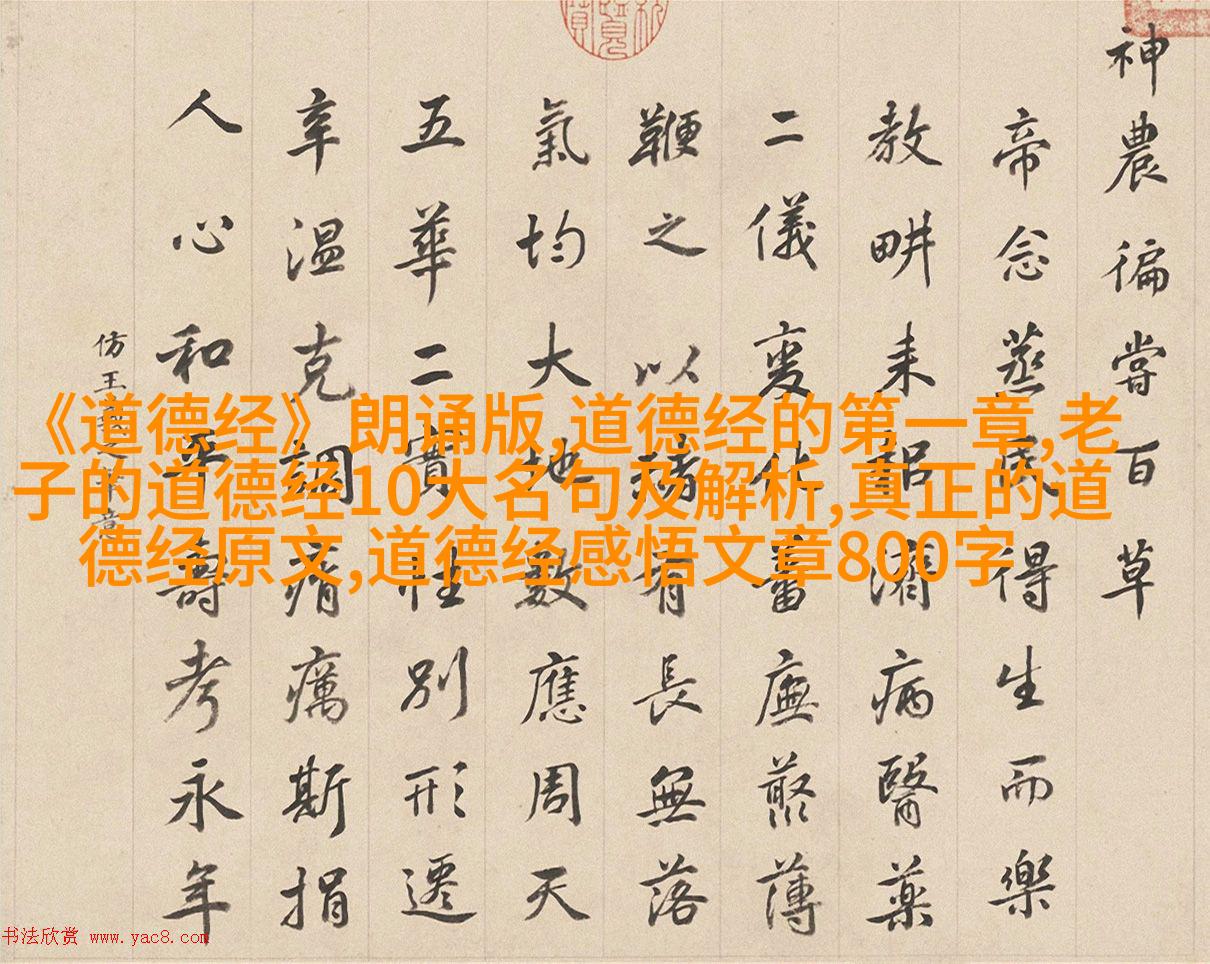 神農徧嘗百草
帝念蒸民得生而樂
教畊耒耜病醫藥
二儀變化蓄廡藂薄
鞭之以赭有長無落
氣均大地數應周天
五華二實性別形遷
辛溫克調痟癘斯捐
人心和平壽考永年
仿王羲之筆意
《道德经》朗诵版,道德经的第一章,老
子的道德经10大名句及解析,真正的道
德经原文,道德经感悟文章800字
书法欣赏 www.yac8.com